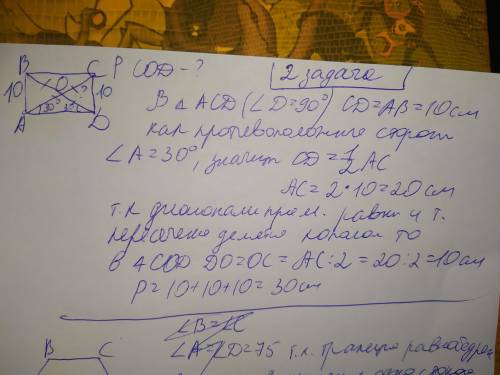 B C P COD - ?
2 задача
O
10 10
30°
A D
В △ ACD (∠D=90°) CD=AB=10см
как противоположные стороны
∠A=30°, значит CD=1/2 AC
AC = 2·10=20см
т.к диагонали прям. равны и т.
пересечения делятся пополам то
В △COD DO=OC= AC:2=20:2=10см
P=10+10+10=30см
∠B=∠C
B C ∠A=∠D=75 т.к. трапеция равнобедрен